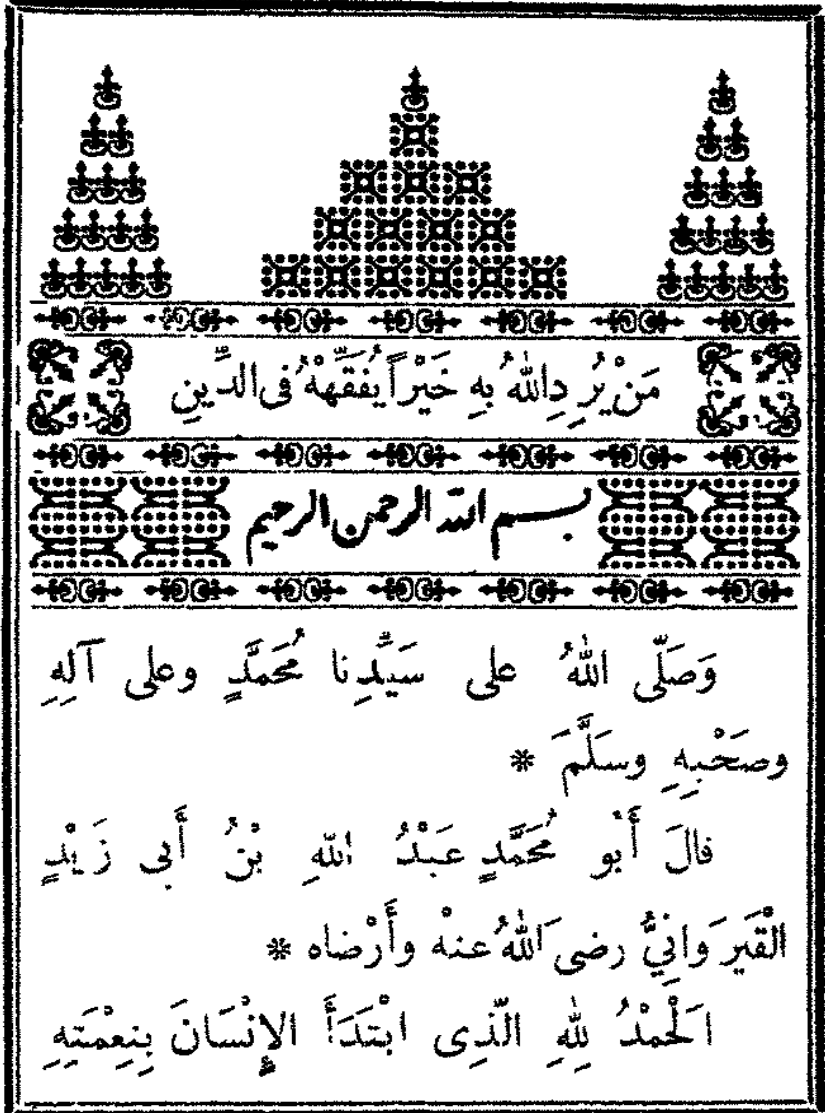 مَنْ يُرِدِ اللهُ بِهِ خَيْراً يُفَقِّهْهُ فى الدِّينِ
بسم الله الرحمن الرحيم
وَصَلَّى اللهُ على سَيِّدِنا مُحَمَّدٍ وعلى آلِهِ
وصَحْبِهِ وسَلَّمَ *
قالَ أَبو مُحَمَّدٍ عَبْدُ اللهِ بْنُ أَبى زَيْدٍ
الْقَيرَوانِيُّ رضىَ اللهُ عنهْ وأَرْضاه *
اَلْحَمْدُ لِلهِ الَّذِى ابْتَدَأَ الإِنْسَانَ بِنِعْمَتِهِ